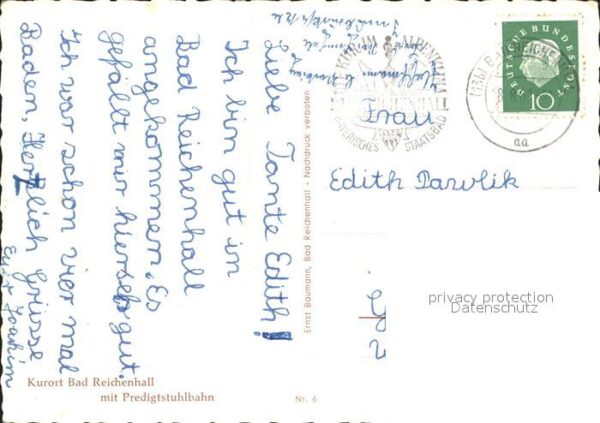 Liebe Tante Edith!
Ich bin gut in
Bad Reichenhall
angekommen. Es
gefällt mir hier sehr gut.
Ich war schon vier mal
Baden. Herzlich Grüsse
Euer Joachim
Kurort Bad Reichenhall
mit Predigtstuhlbahn
Nr. 6
Ernst Baumann, Bad Reichenhall - Nachdruck verboten
BAYERISCHES STAATSBAD
DEUTSCHE BUNDESPOST
10
aa
Frau
Edith Pawlik
privacy protection
Datenschutz